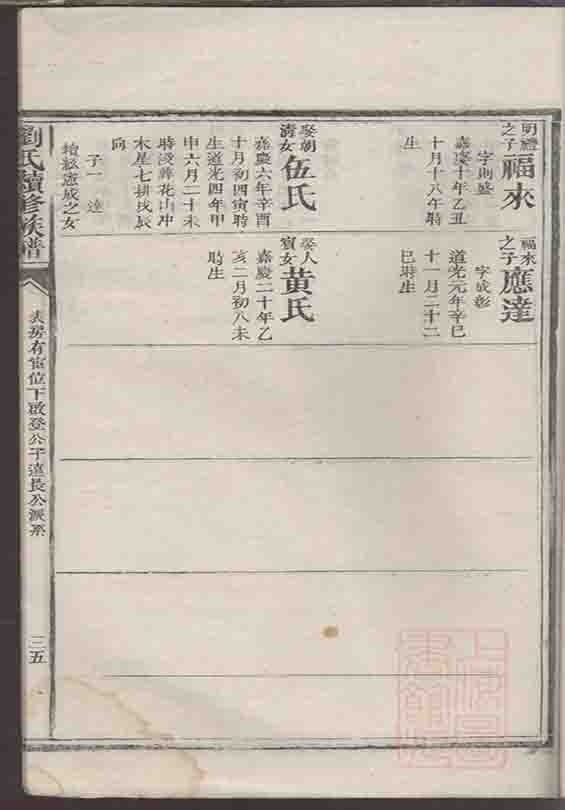 明禮
之子
福來
字則盛
嘉慶十年乙丑
十月十八午時
生
娶朝
淸女
伍氏
嘉慶六年辛酉
十月初四寅時
生道光四年甲
申六月二十未
時沒葬花山冲
木星七耕戌辰
向
子一 達
續
惠威之女
福來
之子
應達
字成彰
道光元年辛巳
十一月二十二
巳時生
娶人
賓女
黄氏
嘉慶二十年乙
亥二月初八未
時生
劉氏續修族譜
房有
位下啟登公子遠長公派系
三五
上
圖
書館